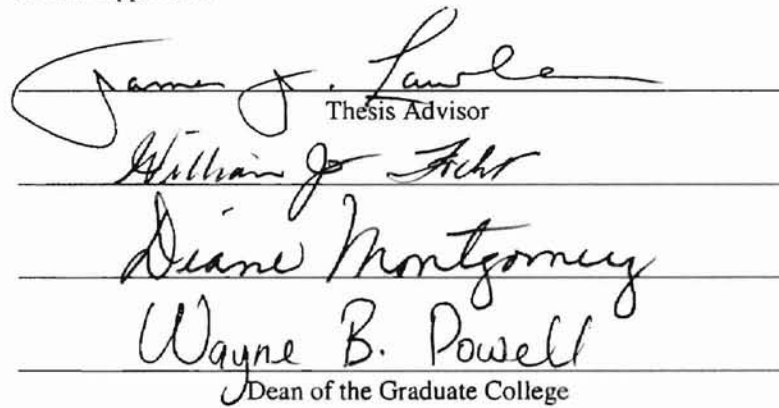 James J. Lawler
Thesis Advisor
William J Focht
Diane Montgomery
Wayne B. Powell
Dean of the Graduate College